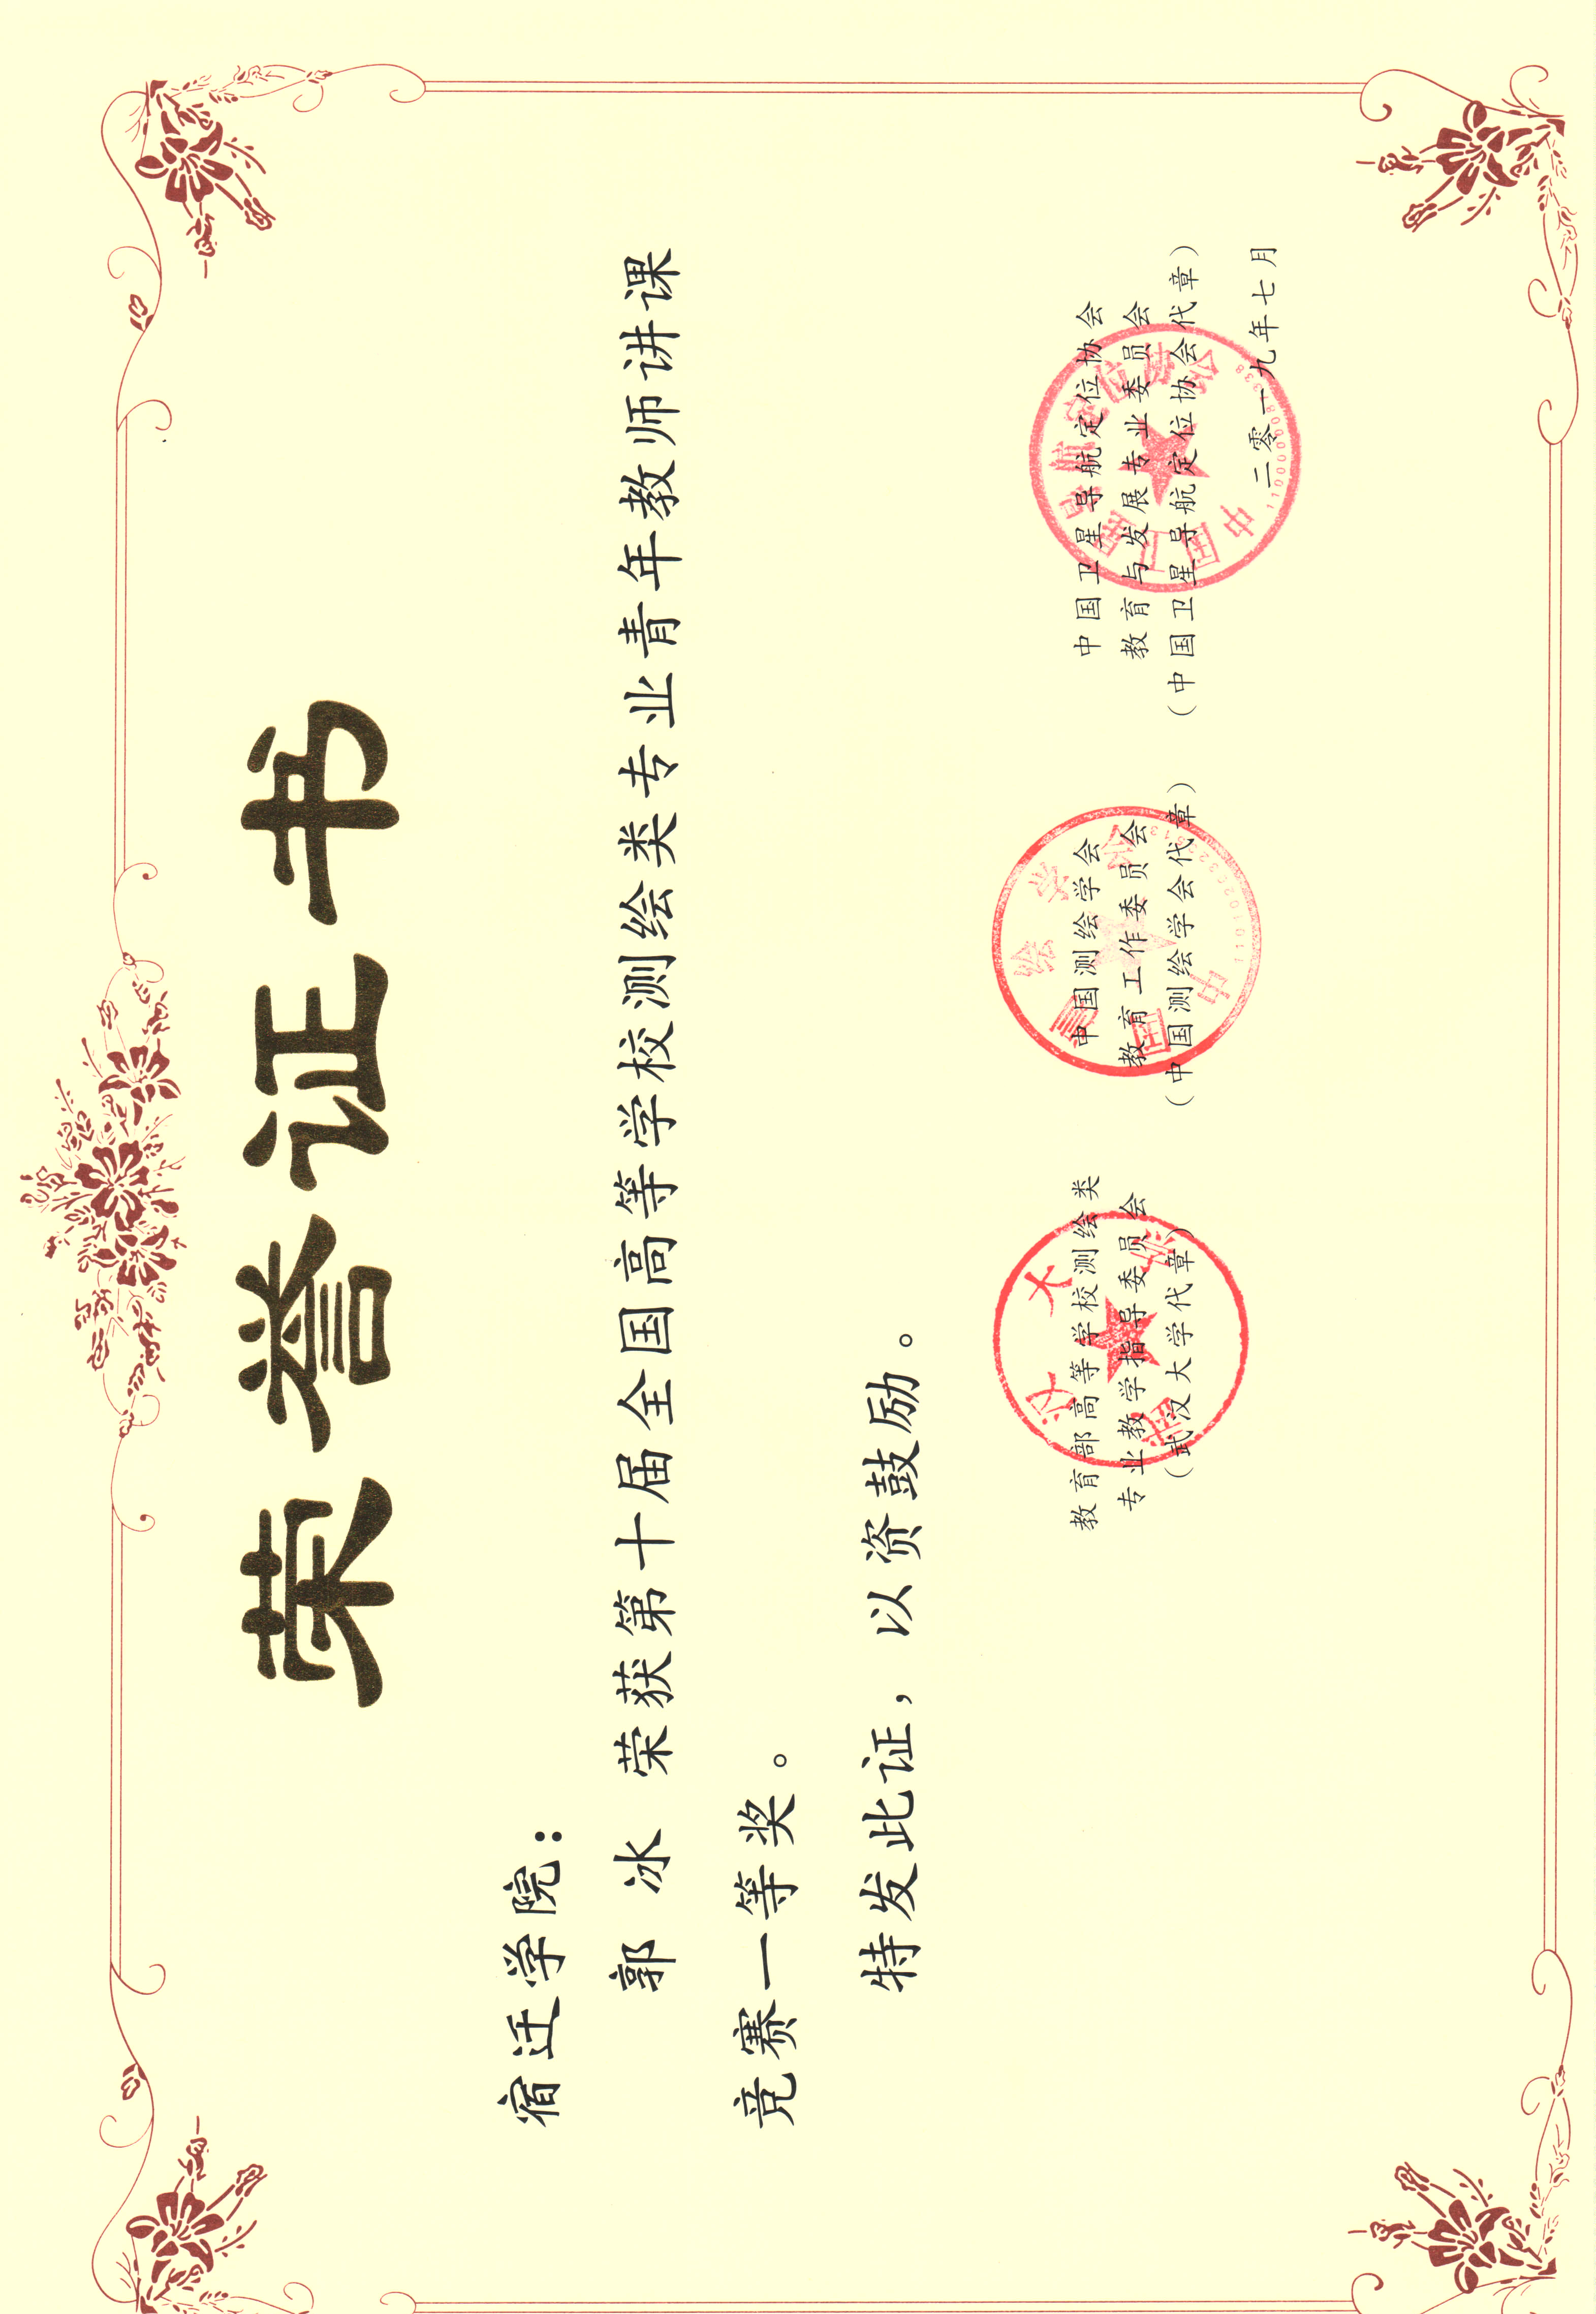 荣誉证书
宿迁学院：
郭 冰 荣获第十届全国高等学校测绘类专业青年教师讲课
竞赛一等奖。
特发此证，以资鼓励。
教育部高等学校测绘类
专业教学指导委员会
（武汉大学代章）
武汉大学
中国测绘学会
教育工作委员会
（中国测绘学会代章）
中国测绘学会
中国卫星导航定位协会
教育与发展专业委员会
（中国卫星导航定位协会代章）
中国卫星导航定位协会
二零一九年七月